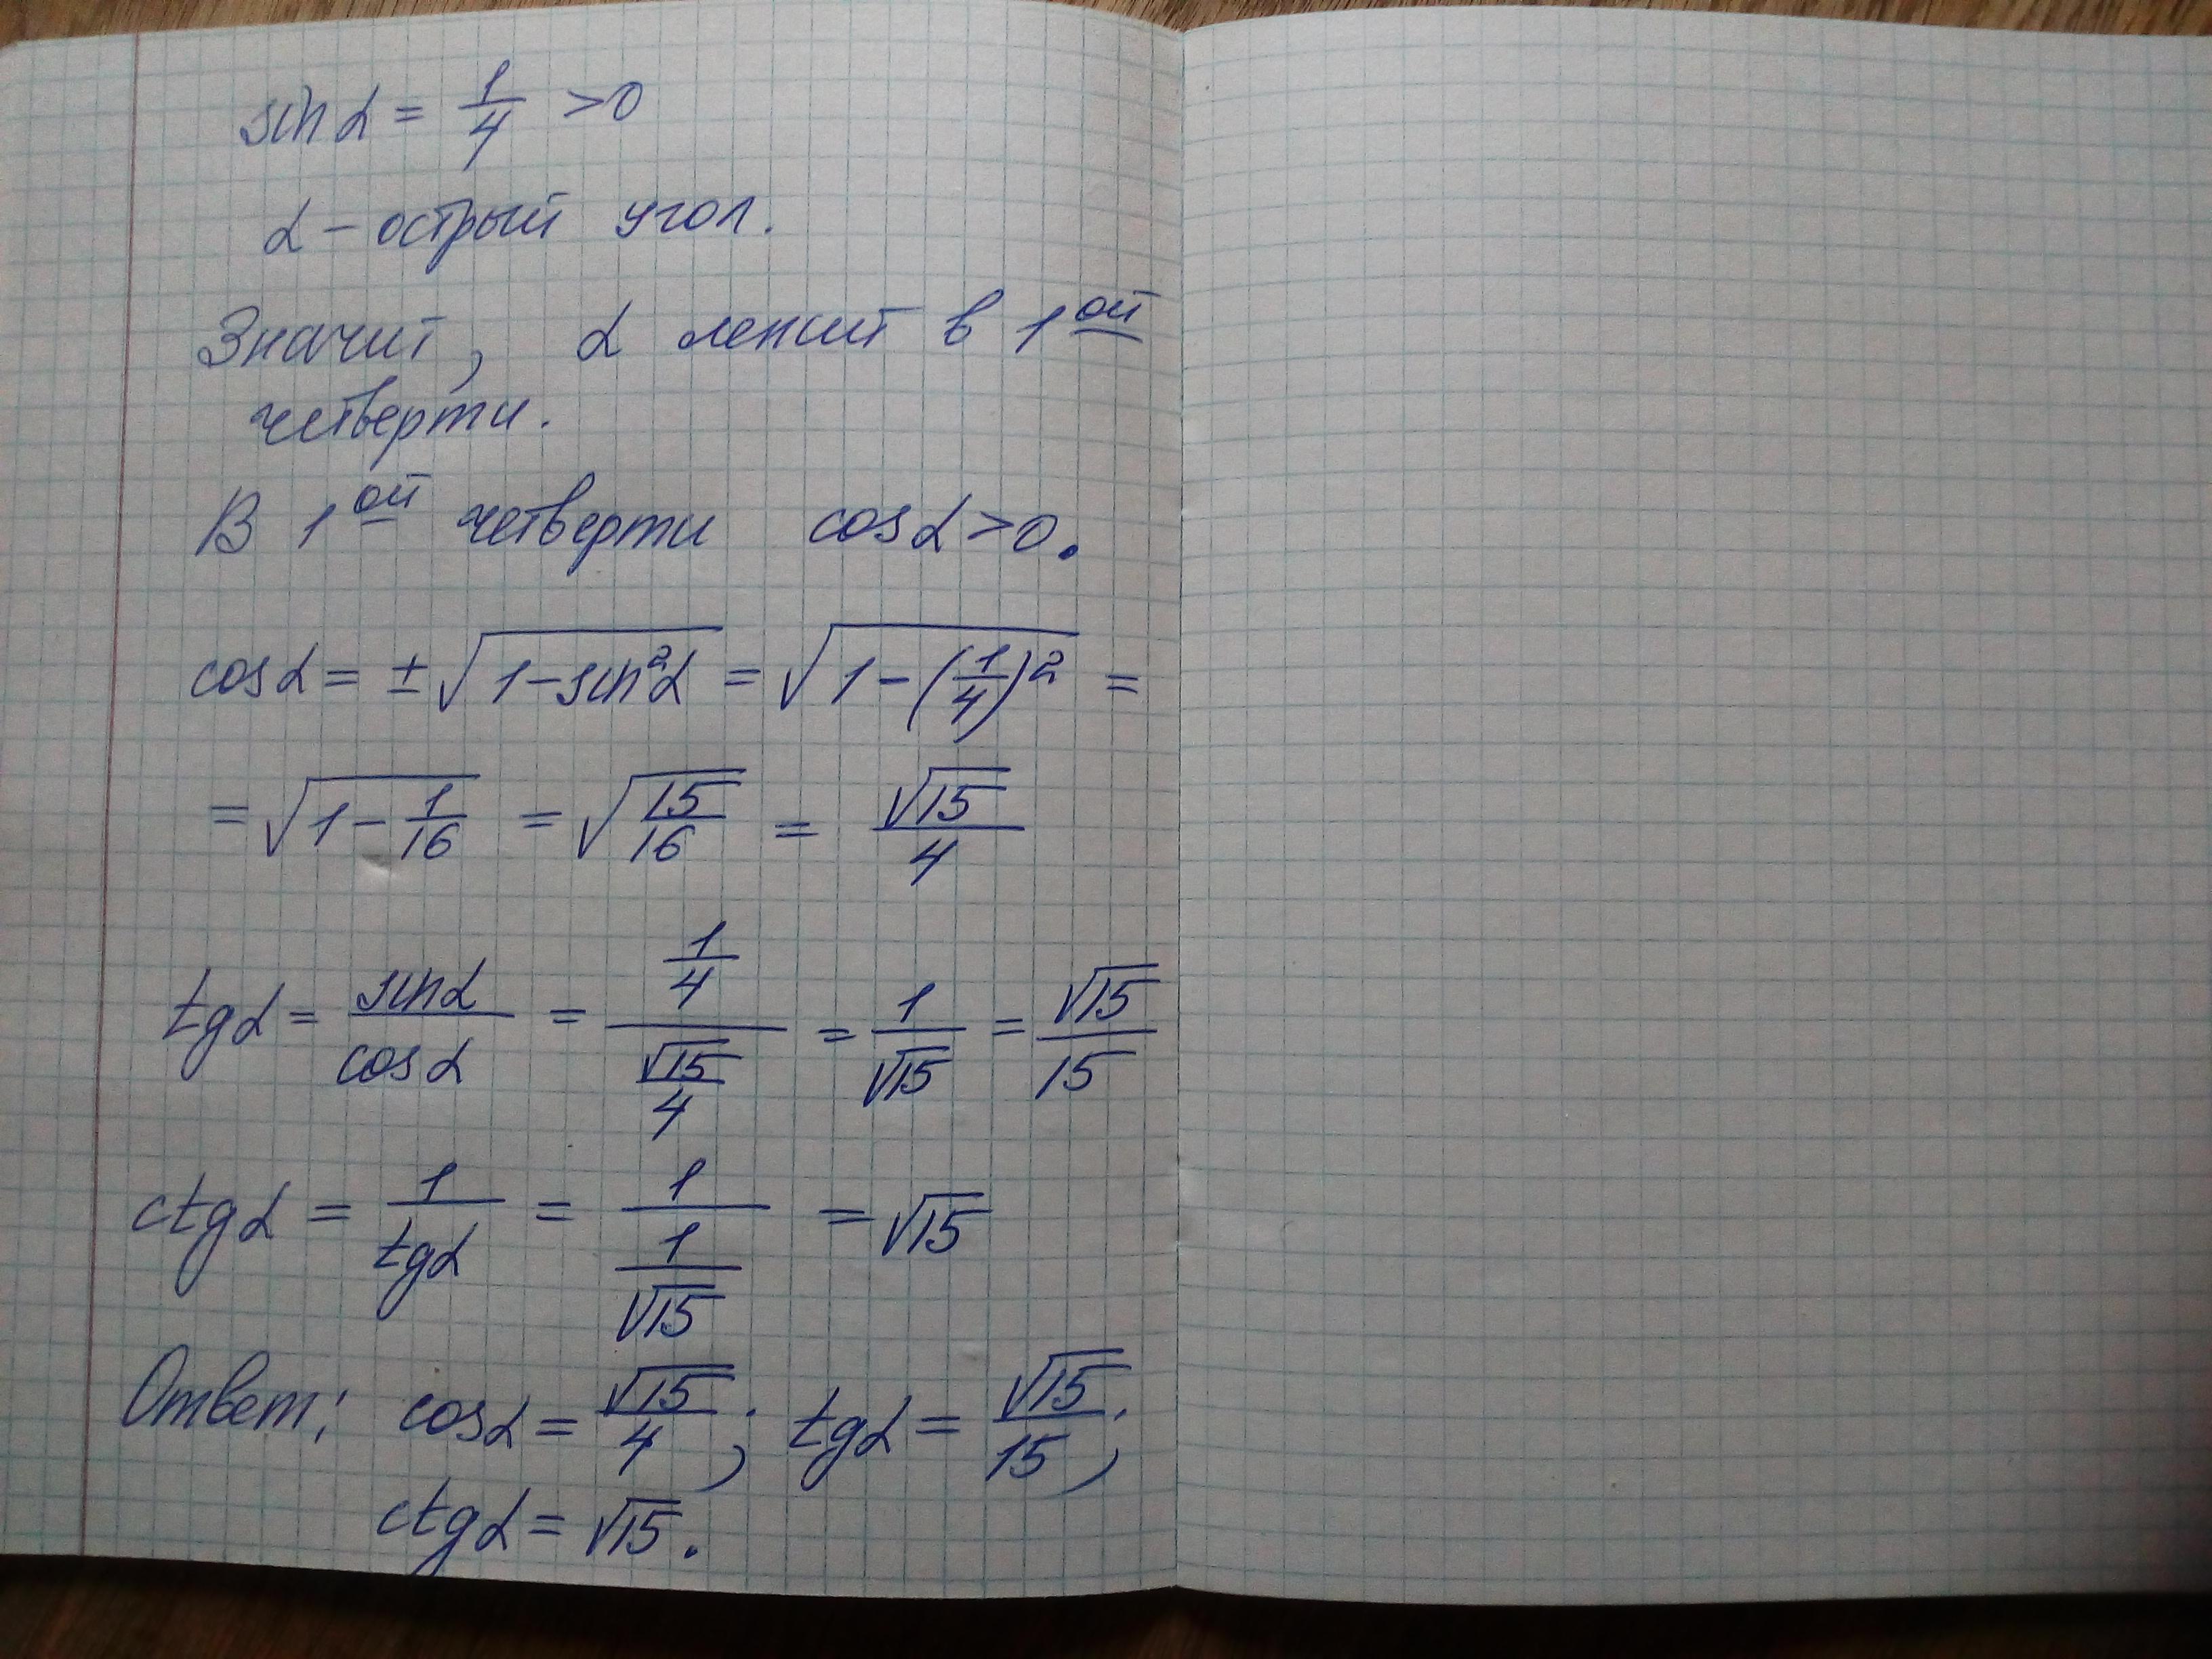 sin α = 1/4 > 0
α – острый угол.
Значит, α лежит в 1ой
четверти.
В 1ой четверти cos α > 0.
cos α = ± √(1 – sin²α) = √(1 – (1/4)²) =
= √(1 – 1/16) = √(15/16) = √15/4
tg α = sin α/cos α = (1/4)/(√15/4) = 1/√15 = √15/15
ctg α = 1/tg α = 1/(1/√15) = √15
Ответ: cos α = √15/4; tg α = √15/15;
ctg α = √15.